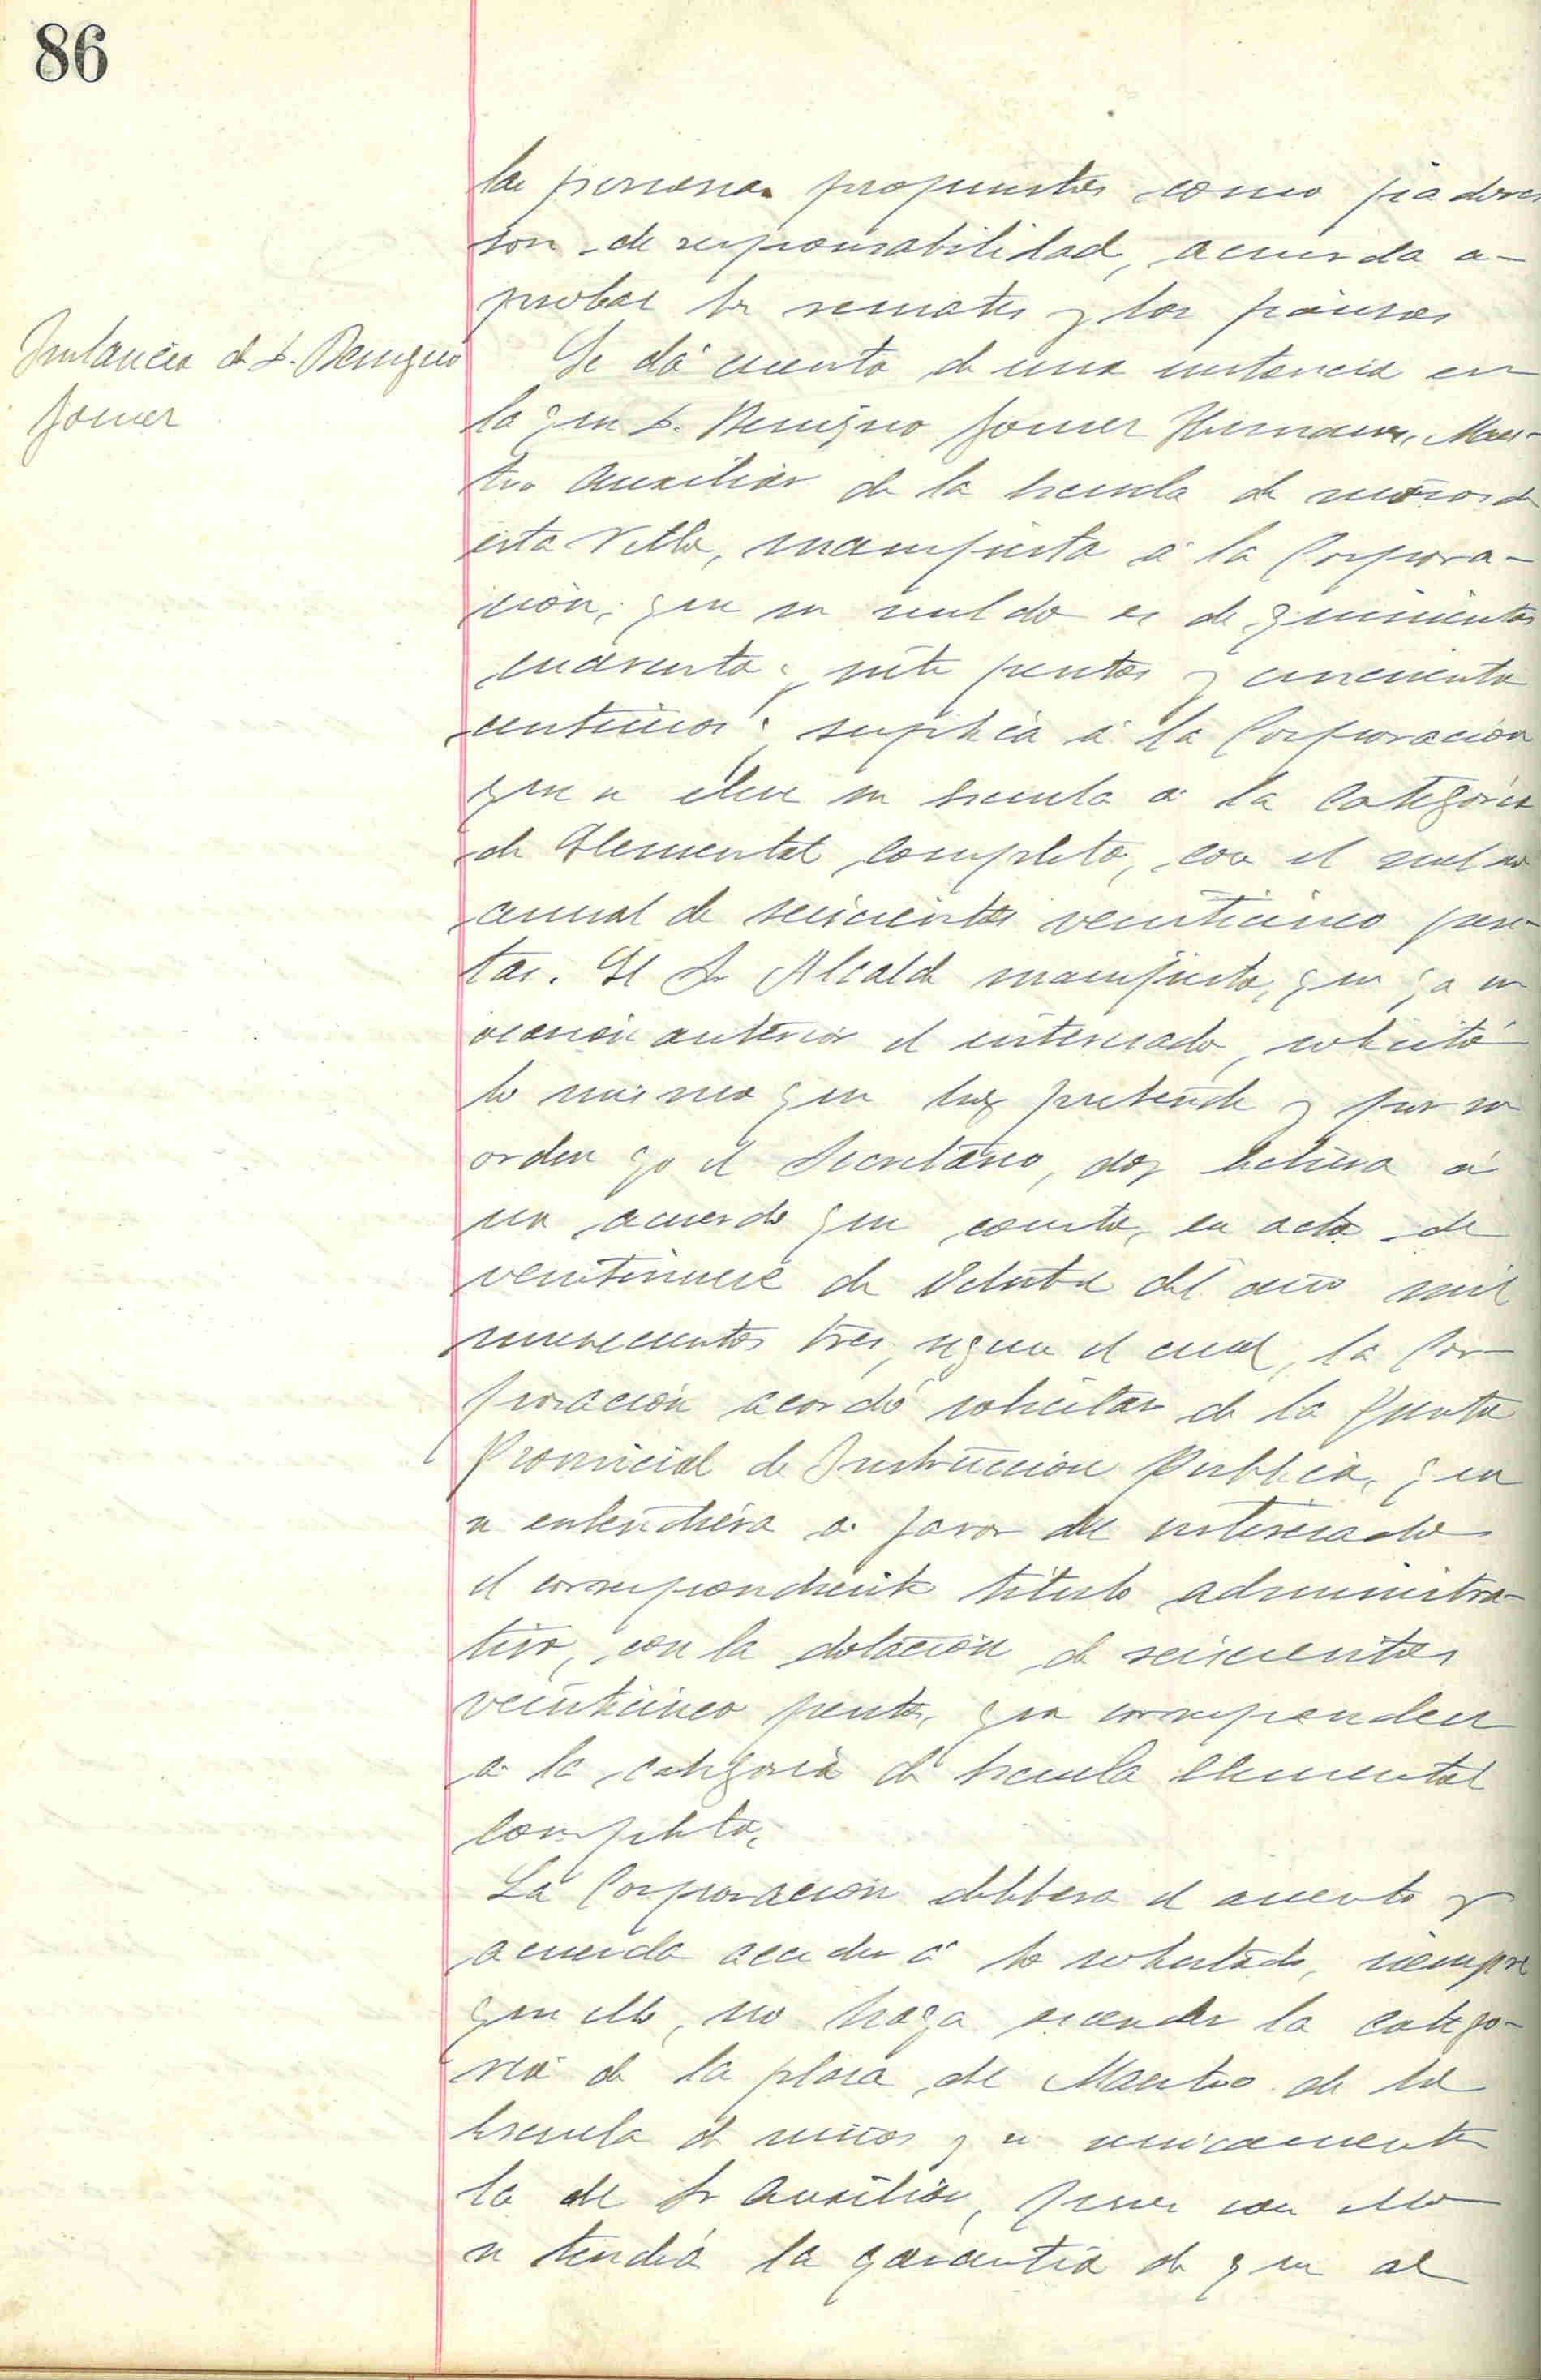 86
las personas propuestas como fiadores
son de responsabilidad, acuerda a-
probar los remates y las fianzas
Instancia de D. Benigno
Gomez
Se dá cuenta de una instancia en
la que D. Benigno Gomez Maes-
tro Auxiliar de la Escuela de niños de
esta Villa, manifiesta á la Corpora-
ción, que su sueldo es de quinientas
cuarenta y siete pesetas y cincuenta
centimos y suplica á la Corporación
que se eleve su Escuela a la Categoria
de Elemental Completa, con el sueldo
anual de seiscientas veinticinco pese-
tas. El Sr Alcalde manifiesta, que ya en
ocasión anterior el interesado solicitó
lo mismo que hoy pretende y por su
orden yo el Secretario, doy lectura á
un acuerdo que consta, en acta de
veintinueve de Octubre del año mil
novecientos tres, segun el cual, la Cor-
poración acordó solicitar de la Junta
Provincial de Instrucción Publica, que
se extendiera a favor del interesado
el correspondiente titulo administra-
tivo, con la dotación de seiscientas
veinticinco pesetas, que corresponden
a la categoria de Escuela Elemental
Completa.
La Corporación delibera el asunto y
acuerda acceder á lo solicitado, siempre
que ello, no haga ascender la catego-
ria de la plaza del Maestro de la
Escuela de niños y si unicamente
la del Sr Auxiliar, pues con ello
se tendrá la garantia de que al